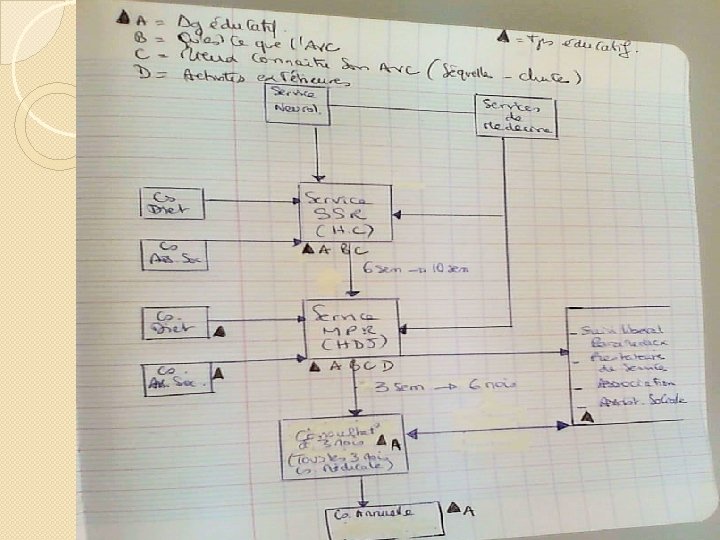 ▲ A = Dg éducatif.
B = Qu'est ce que l'AVC
C = Mieux connaître son AVC (Séquelle - chute)
D = Activités extérieures
▲ = Tps éducatif.
Service
Neurol.
Services
de
Médecine
Cs
Diet
Service
SSR
(H.C)
Cs
As. Soc
▲ A B C
6 sem → 10 sem
Cs.
Diet ▲
Service
MPR
(HDJ)
Cs.
As. Soc. ▲
▲ A B C D
3 sem → 6 mois
- Suivi libéral
Paramédicaux
- Prestataire
de service
- Association
- Assist. Sociale
▲
Cs
3 mois ▲ A
(Tous les 3 mois
Cs. médicale)
Cs. Annuelle ▲ A